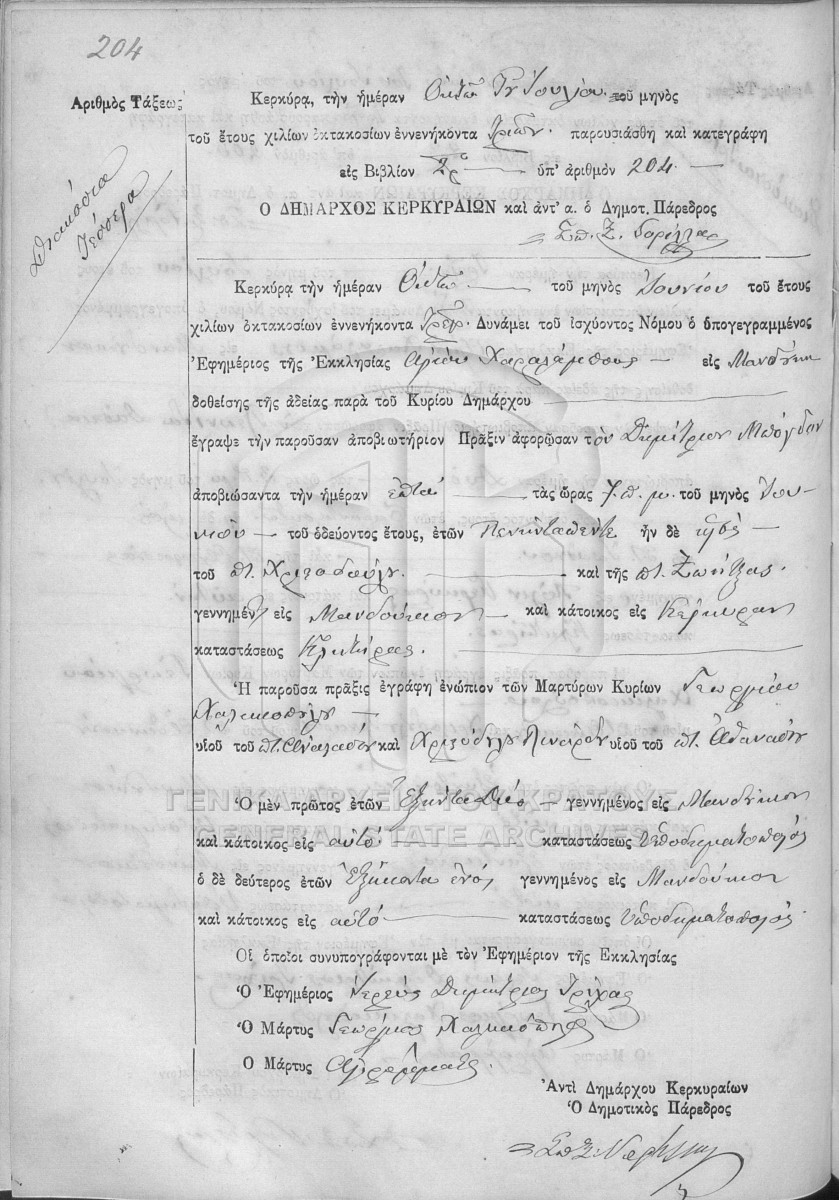 204
Ἀριθμὸς Τάξεως
Διακόσια
Τέσσερα
Κερκύρᾳ, τὴν ἡμέραν Ὀκτὼ Ἰουλίου τοῦ μηνὸς
τοῦ ἔτους χιλίων ὀκτακοσίων ἐννενήκοντα τριῶν παρουσιάσθη καὶ κατεγράφη
εἰς Βιβλίον 2ον ὑπ' ἀριθμὸν 204
Ο ΔΗΜΑΡΧΟΣ ΚΕΡΚΥΡΑΙΩΝ καὶ ἀντ' α. ὁ Δημοτ. Πάρεδρος
Σπ. Ξ.
Κερκύρᾳ τὴν ἡμέραν Ὀκτὼ τοῦ μηνὸς Ἰουνίου τοῦ ἔτους
χιλίων ὀκτακοσίων ἐννενήκοντα τριῶν. Δυνάμει τοῦ ἰσχύοντος Νόμου ὁ ὑπογεγραμμένος
Ἐφημέριος τῆς Ἐκκλησίας Ἁγίου Χαραλάμπους εἰς Μανδύκι
δοθείσης τῆς ἀδείας παρὰ τοῦ Κυρίου Δημάρχου
ἔγραψε τὴν παροῦσαν ἀποβιωτήριον Πρᾶξιν ἀφορῶσαν τὸν Δημήτριον Μπόγδαν
ἀποβιώσαντα τὴν ἡμέραν ἑπτὰ τὰς ὥρας 7. π. μ. τοῦ μηνὸς Ἰου-
νίου τοῦ ὁδεύοντος ἔτους, ἐτῶν Πενῆντα πέντε ἦν δὲ υἱὸς
τοῦ π. Χριστοδούλου καὶ τῆς π. Ζωίτζας
γεννημέν εἰς Μανδούκιον καὶ κάτοικος εἰς Κέρκυραν
καταστάσεως Κλητῆρας.
Ἡ παροῦσα πρᾶξις ἐγράφη ἐνώπιον τῶν Μαρτύρων Κυρίων Γεωργίου
Χαλικιοπούλου
υἱοῦ τοῦ π. Ἀναστασίου καὶ υἱοῦ τοῦ π. Ἀθανασίου
ΓΕΝΙΚΑ ΑΡΧΕΙΑ ΤΟΥ ΚΡΑΤΟΥΣ
GENERAL STATE ARCHIVES
Ὁ μὲν πρῶτος ἐτῶν Ἑξῆντα Δύο γεννημένος εἰς Μανδύκιον
καὶ κάτοικος εἰς αὐτό καταστάσεως Ὑποδηματοποιός
ὁ δὲ δεύτερος ἐτῶν Ἑξήκοντα ἑνός γεννημένος εἰς Μανδούκιον
καὶ κάτοικος εἰς αὐτὸ καταστάσεως Ὑποδηματοποιός.
Οἱ ὁποῖοι συνυπογράφονται μὲ τὸν Ἐφημέριον τῆς Εκκλησίας
Ὁ Ἐφημέριος Ἱερεὺς Δημήτριος Τρίχας
Ὁ Μάρτυς Γεώργιος
Ὁ Μάρτυς Ἀγράμματος.
Ἀντὶ Δημάρχου Κερκυραίων
Ὁ Δημοτικὸς Πάρεδρος
Σπ. Ξ.